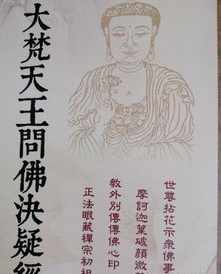 大梵天王問佛決疑經
世尊拈花示衆佛事
摩訶迦葉破顏微
教外別傳傳佛心印
正法眼藏禪宗初祖